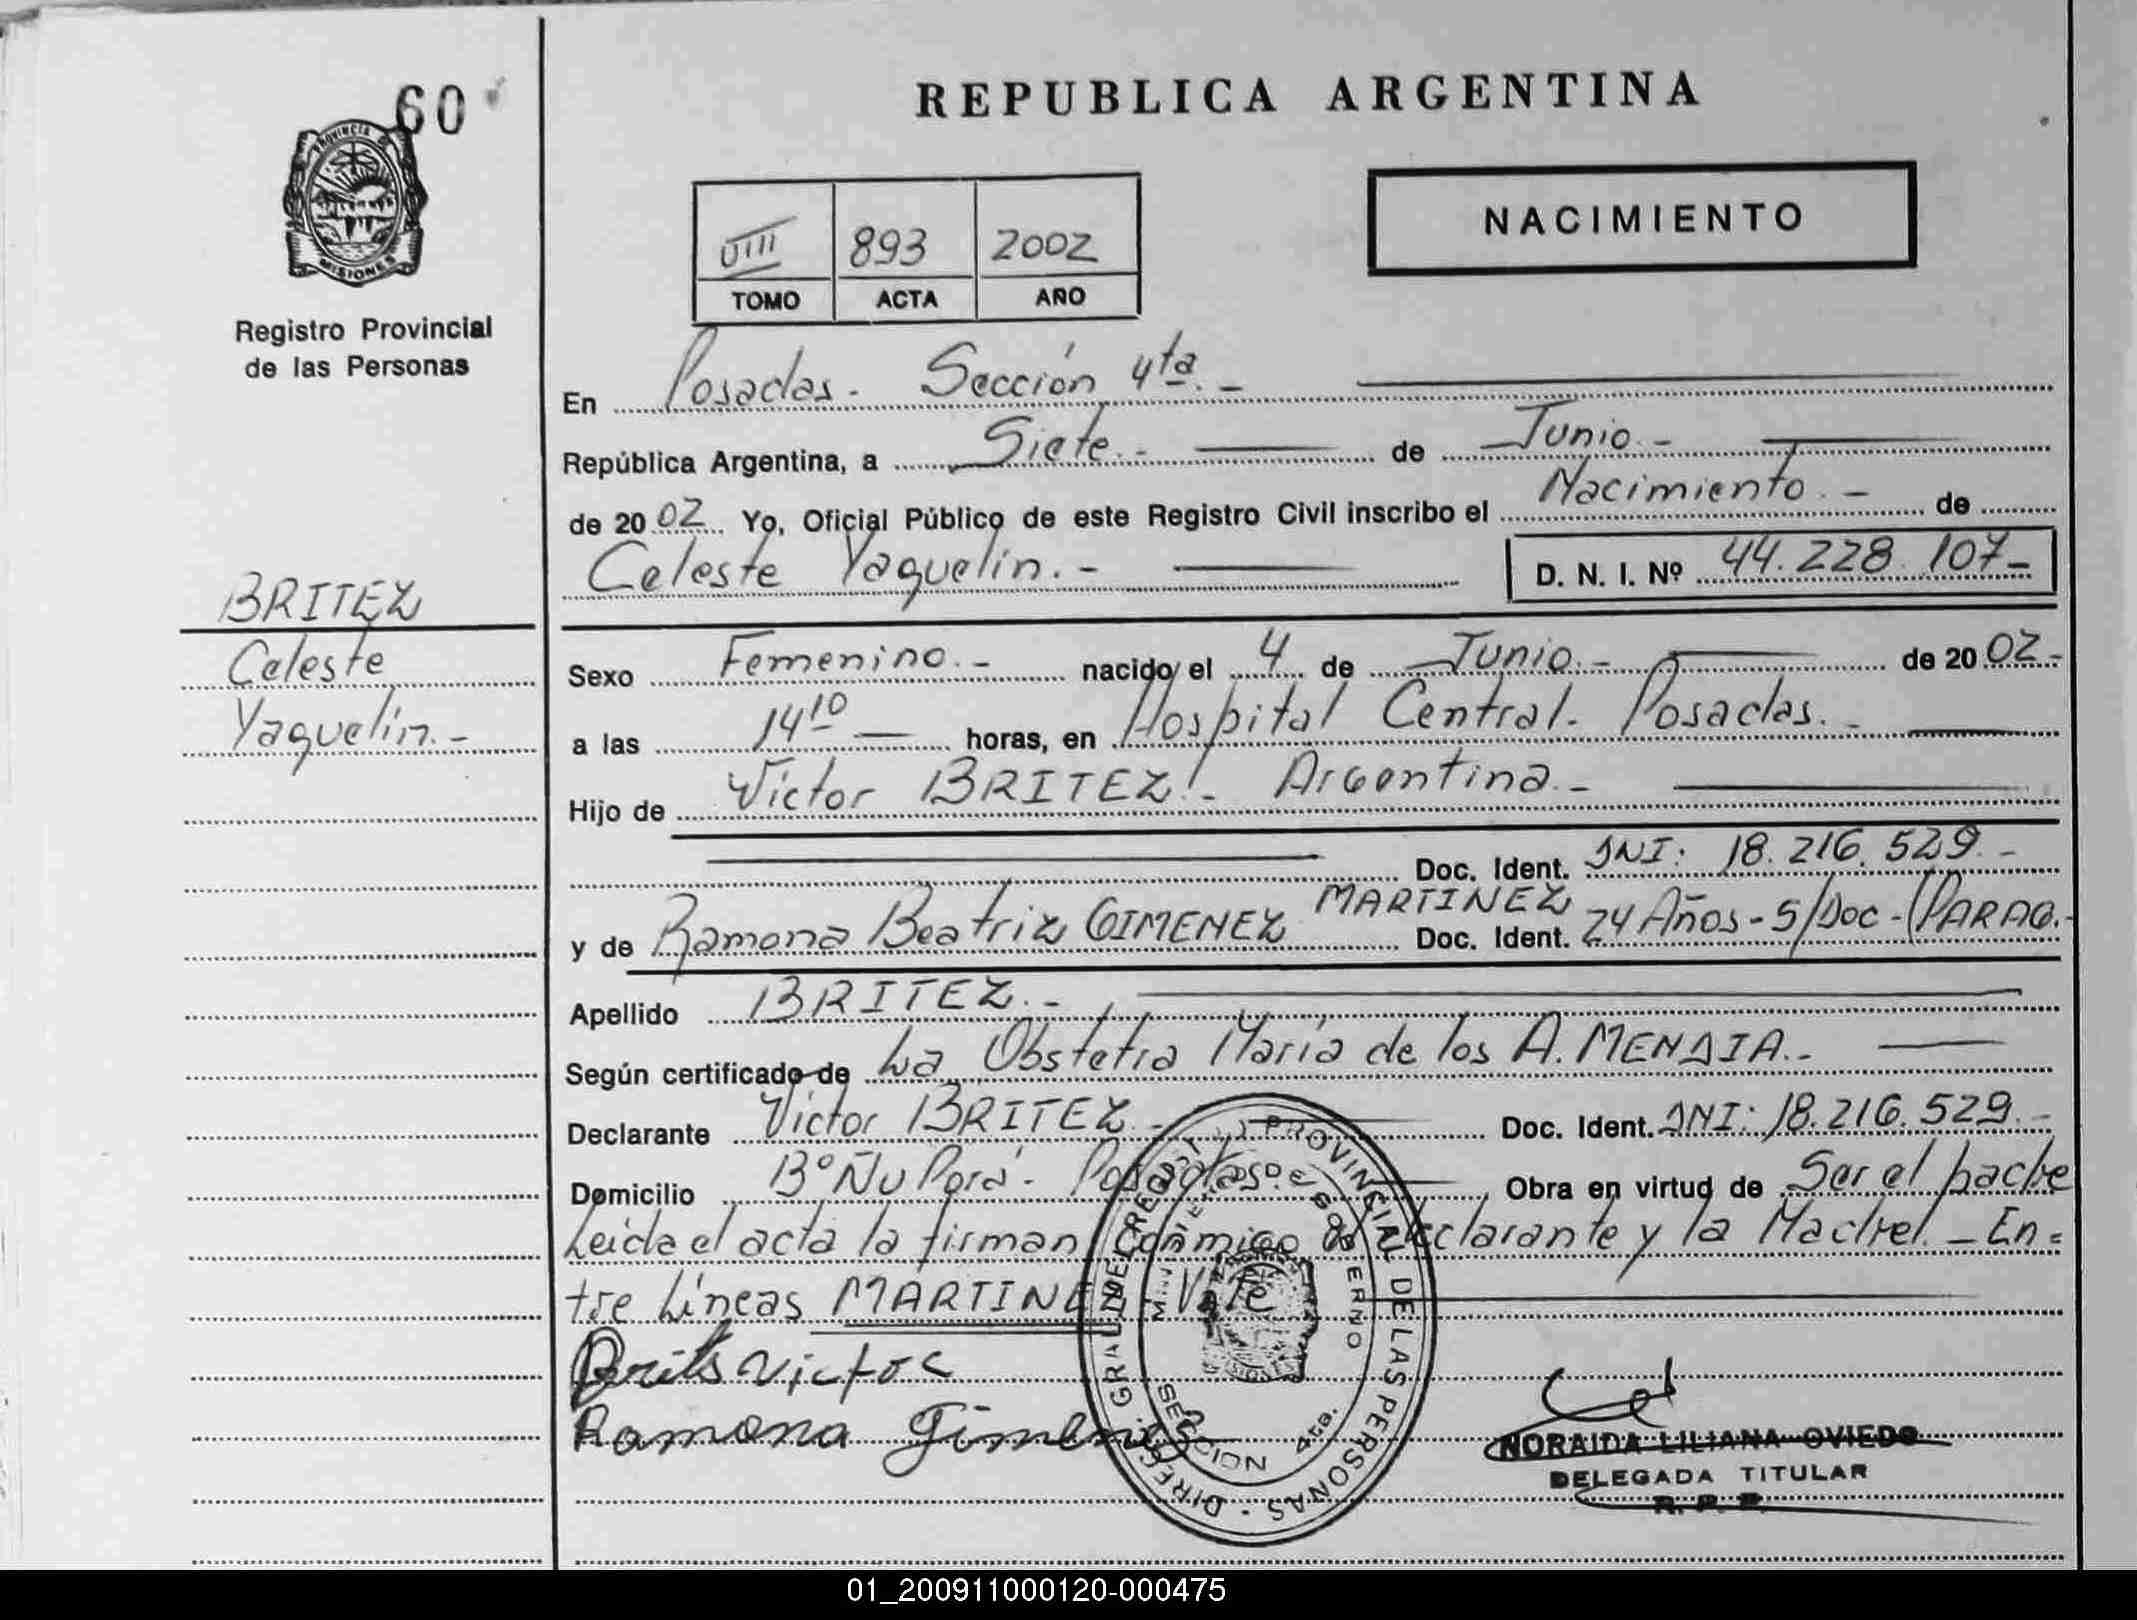 60
PROVINCIA DE
MISIONES
Registro Provincial
de las Personas
BRITEZ
Celeste
Yaquelin.-
REPUBLICA ARGENTINA
NACIMIENTO
VIII 893 2002
TOMO ACTA AÑO
En Posadas. Sección 4ta.-
República Argentina, a Siete.- de Junio.-
de 2002 Yo, Oficial Público de este Registro Civil inscribo el Nacimiento.- de
Celeste Yaquelin.- D. N. I. Nº 44.228.107-
Sexo Femenino.- nacido el 4 de Junio.- de 2002.-
a las 14 10 horas, en Hospital Central. Posadas.-
Hijo de Victor BRITEZ.- Argentina.-
Doc. Ident. DNI: 18.216.529.-
MARTINEZ
y de Ramona Beatriz GIMENEZ Doc. Ident. 24 Años - S/Doc - (PARAG.-
Apellido BRITEZ.-
Según certificado de La Obstetra María de los A. MENDIA.-
Declarante Victor BRITEZ.- Doc. Ident. DNI: 18.216.529.-
Domicilio Bº Ñu Porá. Posadas Obra en virtud de Ser el padre
Leída el acta la firman conmigo el declarante y la Madre. - En=
tre Líneas MARTINEZ Vale
Brites Victor
Ramona Gimenez
DIREC. GRAL. DEL REGIST. PROVINCIAL DE LAS PERSONAS
MINISTERIO DE GOBIERNO
SECCION 4ta.
NORAIDA LILIANA OVIEDO
DELEGADA TITULAR
R. P. P.
01_200911000120-000475